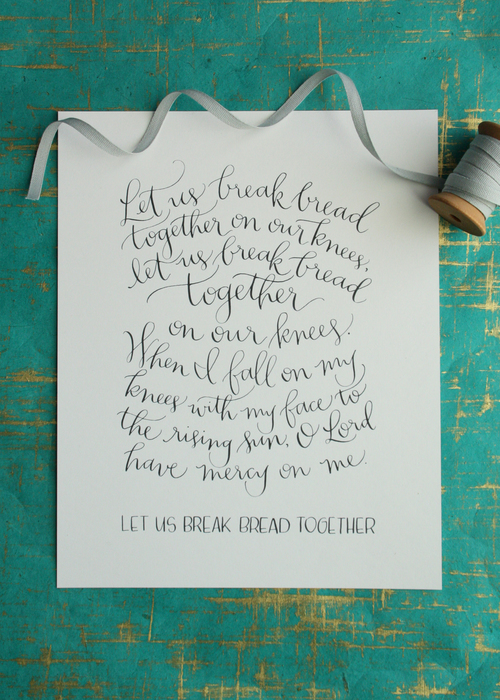 Let us break bread
together on our knees,
let us break bread
together
on our knees.
When I fall on my
knees with my face to
the rising sun, O Lord
have mercy on me.
LET US BREAK BREAD TOGETHER